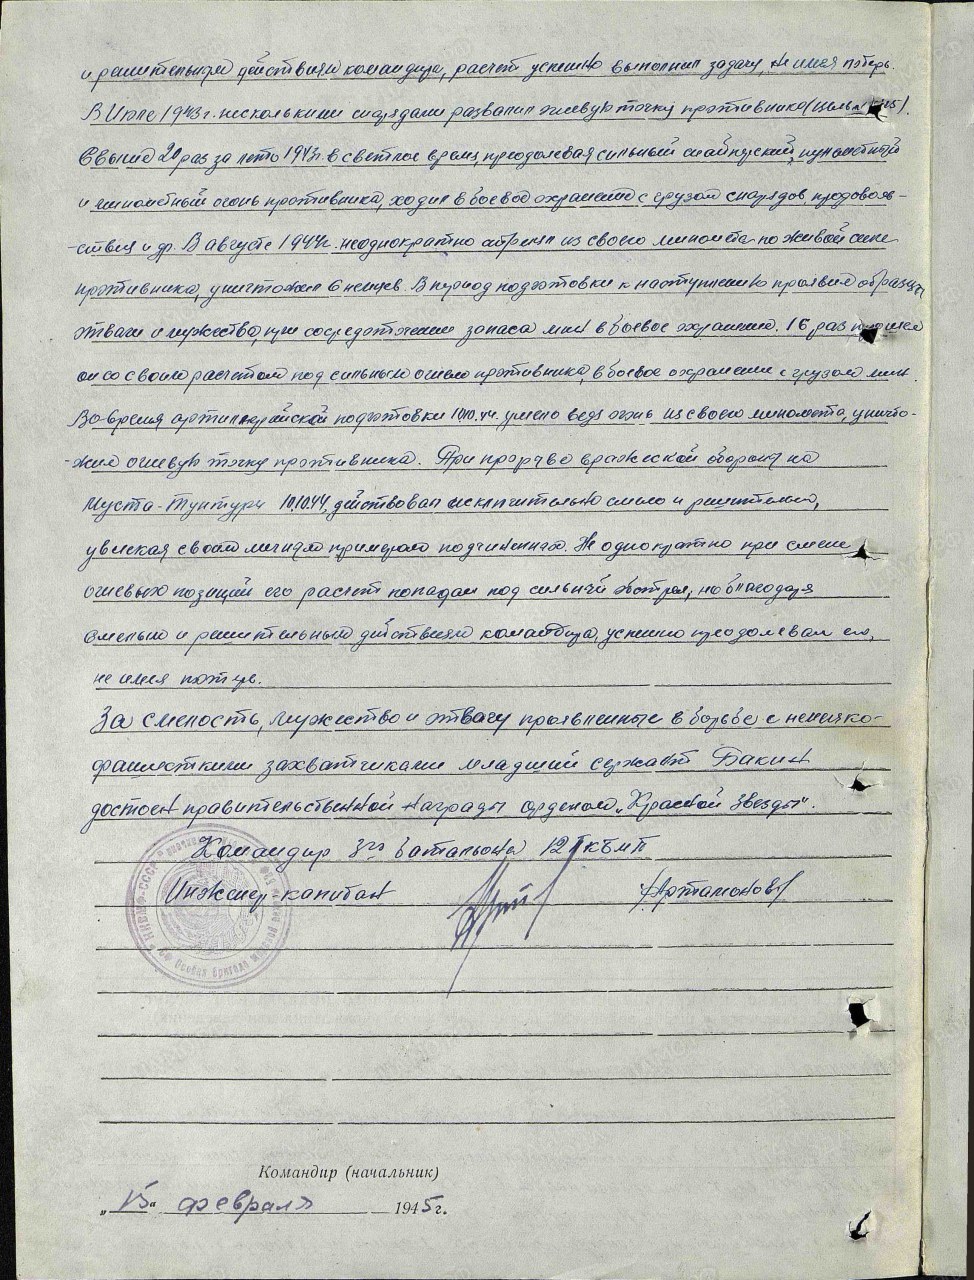 и решительным действиям командира, расчет успешно выполнил задачу, не имея потерь.
В Июле 1943 г. несколькими снарядами развалил огневую точку противника (цель
Свыше 20 раз за лето 1943г. в светлое время, преодолевая сильный снайперский, пулеметный
и минометный огонь противника, ходил в боевое охранение с грузом снарядов, продоволь-
-ствия и др. В августе 1944г. неоднократно стрелял из своего миномета по живой силе
противника, уничтожил 6 немцев. В период подготовки к наступлению проявил образцы
отваги и мужества, при сосредоточении запаса мин в боевое охранение. 16 раз прошел
он со своим расчетом под сильным огнем противника, в боевое охранение с грузом мин.
Во-время артиллерийской подготовки 10.10.44. умело ведя огонь из своего миномета, уничто-
-жил огневую точку противника. При прорыве вражеской обороны на
Муста-Тунтури 10.10.44, действовал исключительно смело и решительно,
увлекая своим личным примером подчиненных. Не однократно при смене
огневых позиций его расчет попадал под сильный обстрел, но благодаря
смелым и решительным действиям командира, успешно преодолевал его,
не имея потерь.
За смелость, мужество и отвагу проявленные в борьбе с немецко-
фашисткими захватчиками младший сержант Бакин
достоен правительственной награды орденом „Красной Звезды".
Командир 3го батальона 12 КБМП
Инженер капитан (Артамонов)
Особая бригада морской
Командир (начальник)
„15" февраля 1945 г.